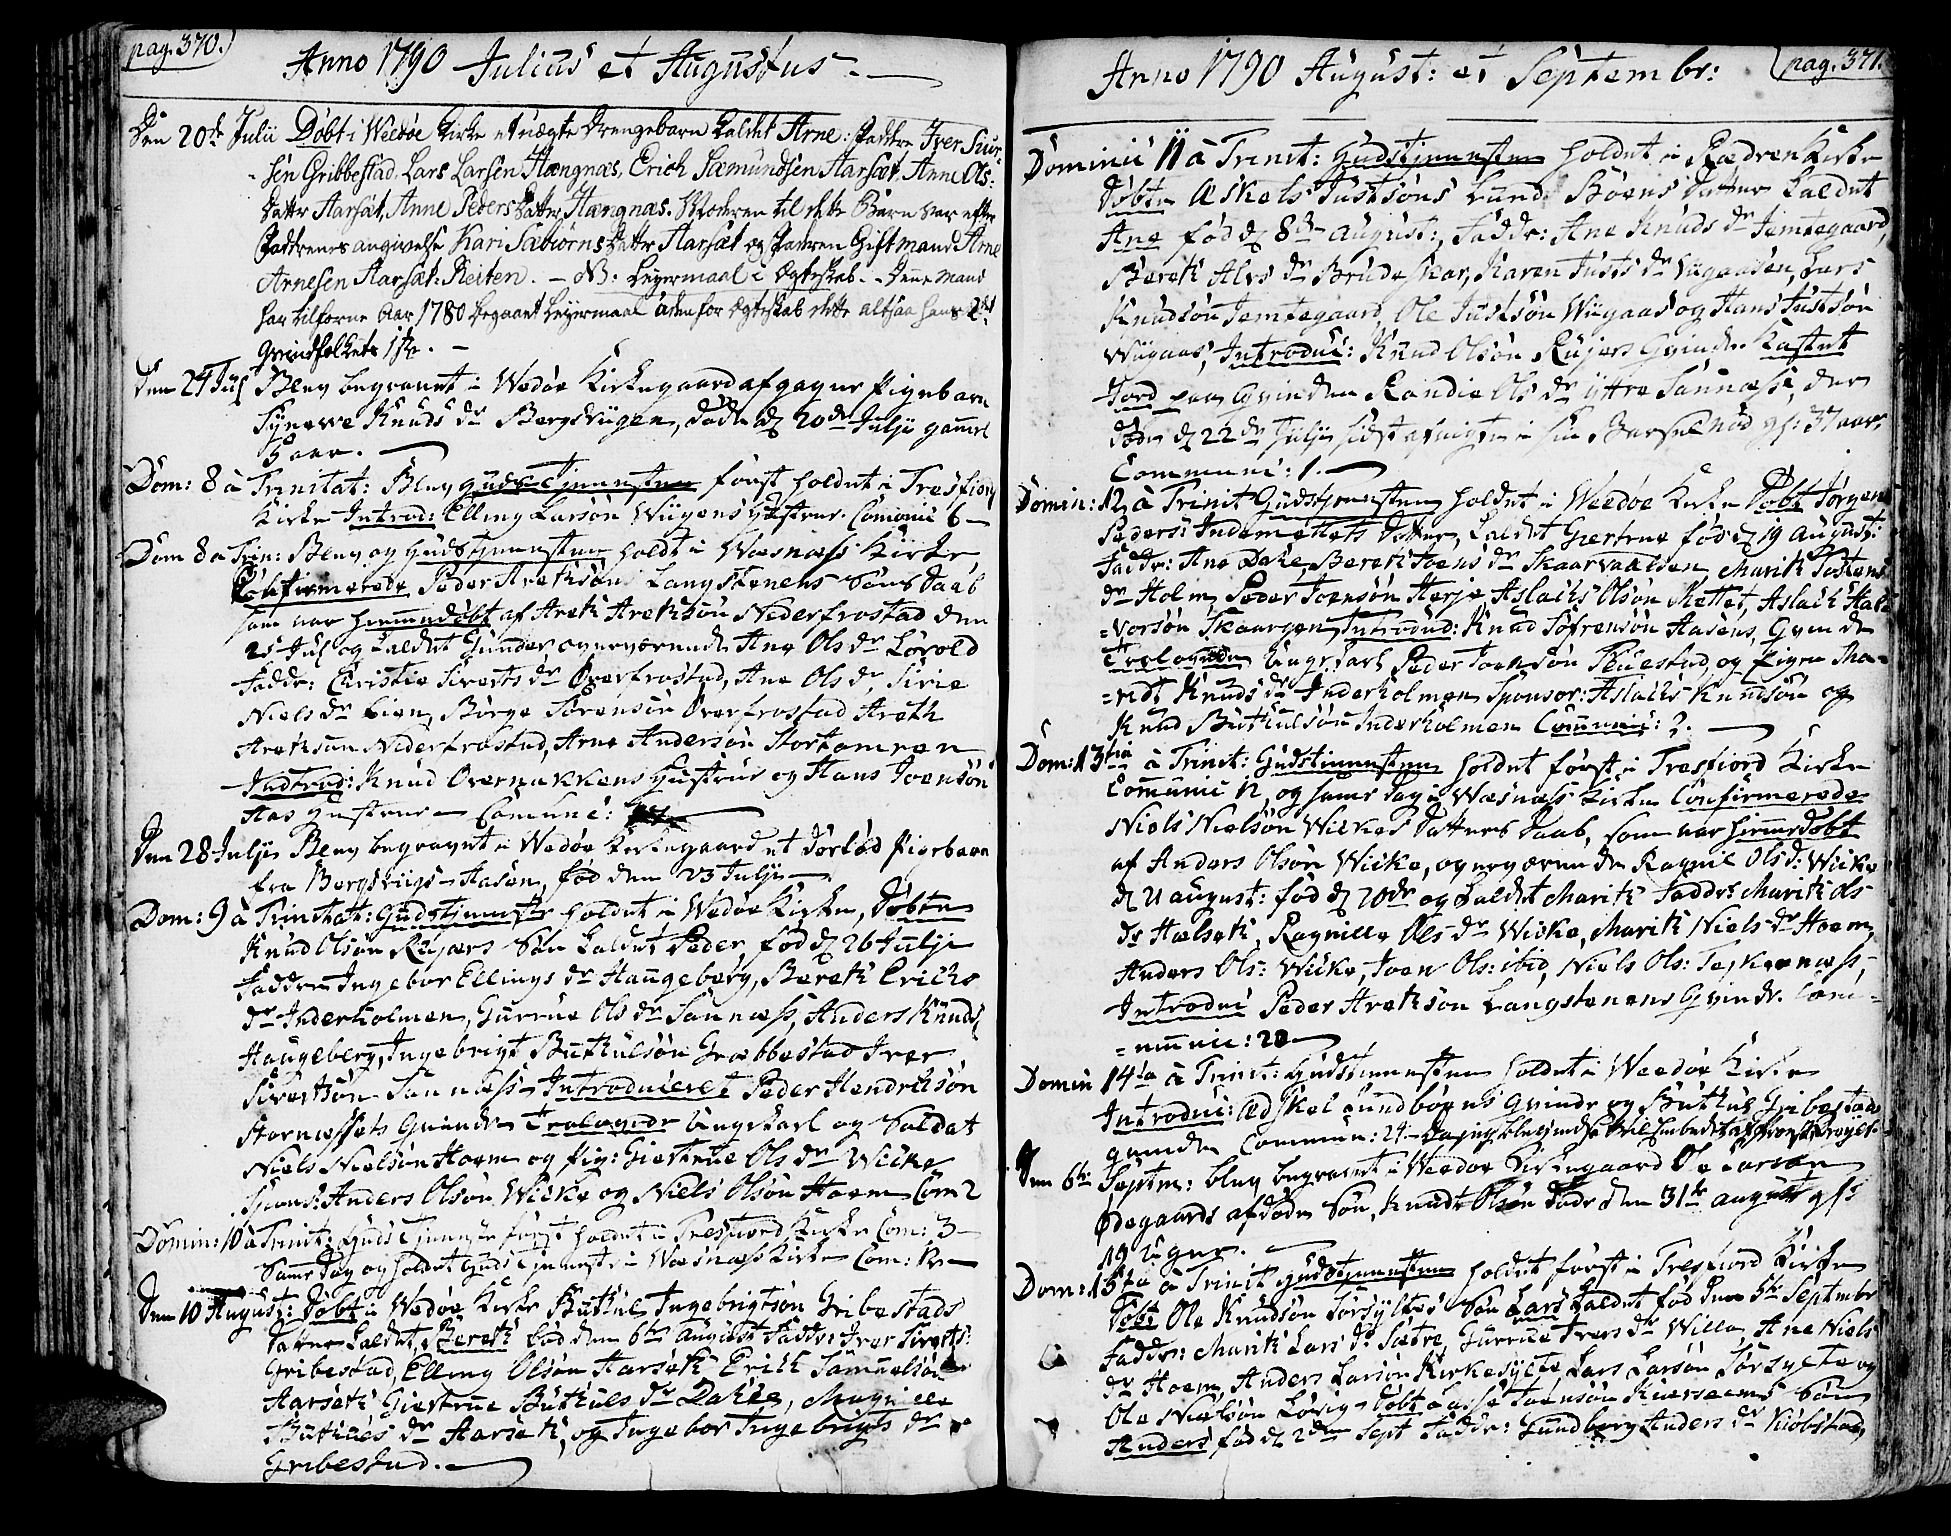 pag. 370.)
Anno 1790 Julius et Augustus. —
Den 20de Julii Døbt i Weedøe Kirke et uægte Drengebarn kaldet Arne: Faddre Iver Siur-
sen Gribbestad, Lars Larsen Hængnæs, Erich Sæmundsen Aarsæt, Anne Ols:
Datter Aarsæt, Anne Peders Datter Hængnæs. Moderen til dette Barn var efter
Faddrenes angivelse Kari Sæbiørns Datter Aarsæt og Faderen Gift mand Arne
Arnesen Aarsæt-Reiten. — NB: Leyermaal i Ægteskab. - Denne Mand
har tilforne Aar 1780 begaaet Leyermaal udenfor Ægteskab dette altsaa hans 2det
Qvindfolkets 1ste. —
Den 24 Julj Blev begravet i Wedøe Kirkegaard afgagne Pigebarn
Synewe Knuds dr Bergsviigen, døde d 20de Julji gamel
5 aar. —
Dom: 8 à Trinitat: Blev gudstjenesten først holdet i Tresfiord
Kirke Introd: Elling Larsøn Wiigens Hustrue. Comunic 6 —
Dom 8 a Trin: Blev og Gudstjenesten holdt i Wæsnæss Kirke
Confirmerede Peder Areksøns Langstenens Søns Daab
som var hiemmedøbt af Arek Areksøn Nederfrostad den
25 Julj og kaldet Gunder overværende Ane Ols dr Løvold
Faddr: Christie Siverts dr Øverfrostad, Ane Ols dr, Sirie
Niels dr Lien, Børge Sørensøn Øverfrostad Areth
Areksøn Nederfrostad, Arne Andersøn Stortomren
Introd: Knud Overnakkens Hustrue og Hans Joensøn
Aas Hustrue — Comunic:
Den 28 Julji Blev begravet i Wedøe Kirkegaard et dødfød Pigebarn
fra Bergsviigs-Aasen, fød den 23 Julji —
Dom: 9 à Trinitat: Gudstjeneste holdet i Wedøe Kirke, Døbte
Knud Olsøn Rüjers Søn kaldet Peder fød d 26 Julji
Faddere Ingebor Ellings dr Haugeberg, Berek Erichs
dr Inderholmen, Gurrue Ols dr Sannæss, Anders Knuds
Haugeberg, Ingebrigt Butkulsøn Græbbestad Iver
Sivertsøn Sannæss — Introduceret Peder Hendriksøn
Stornæssets Qvinde Trolovede Ungekarl og Soldat
Niels Nielsøn Hoem og Pig: Giertrue Ols dr Wicke
Spons: Anders Olsøn Wicke og Niels Olsøn Hoem Com 2
Domin: 10 a Trinit: Guds Tjeneste først holdet i Tresfiord Kirke Com: 3 —
Same dag og holdet Guds Tjeneste i Wæsnæss Kirke Com: 12 —
Den 10 August: Døbt i Wedøe Kirke Butkul Ingebrigtsøn Gribestads
Datter kaldet Berek fød den 6te August Faddr: Iver Siverts:
Gribestad, Elling Olsøn Aarsæth Erich Samuelsøn
Aarsæth Giertrue Butkuls dr Dakie, Magnille
Butkuls dr Aarsæth, og Ingebor Ingebrigts dr
Gribestad. —
(pag. 371.
Anno 1790 August: et Septembr:
Dominic 11 à Trinit: Gudstjenesten holdet i Rødven Kirke
Døbte Æskels Justsøns Lund Bøens datter kaldet
Ane fød d 8de August:, Faddr: Ane Knuds dr Jemtegaard,
Berek Alvs dr Brudeskar, Karen Justs dr Wiigaasen, Lars
Knudsøn Jemtegaard, Ole Justsøn Wiigaas og Hans Justsøn
Wiigaas, Introduc: Knud Olsøn Rüjers Qvinde Kastet
Jord paa Qvinden Randie Ols dr Yttre Sannæss, der
døde d 22de Julji sidst afvigte i sin Barselnød gl: 37 aar,
Communic: 1. —
Domin: 12 à Trinit Gudstjenesten holdet i Weedøe Kirke Døbt Jørgen
Peders: Indemettets datter, kaldet Giertrue fød d 19 August:
Faddr: Ane Dake, Berek Joens dr Skaarvaldsen Marit Jostens
dr Holm, Peder Joensøn Herje, Aslachs Olsøn Mettet, Aslach Hal-
=vorsøn Skaargen Introdud: Knud Søfrensøn Aasens, Qvinde
Trolovede Ungekarl Peder Joensøn Fluestad, og Pigen Ma-
=rit Knuds dr Inderholmen Sponsor: Aslachs Knudsøn og
Knud Butkulsøn Inderholmen Communic: 2. —
Dom: 13tia à Trinit: Gudstjenesten holdet først i Tresfiord Kirke
Comunic 12, og same dag i Wæsnæss Kirke Confirmerede
Niels Nielsøn Wickes Datters Daab, som var hiemedøbt
af Anders Olsøn Wicke, overværende Ragnil Ols dr Wicke
d 21 August: fød d 20de og kaldet Marith Faddr: Marith Ols
dr Hælseth, Ragnille Ols dr Wicke, Marith Niels dr Hoem,
Anders Ols: Wicke, Joen Ols: ibid, Niels Ols: Teskenæss,
Introduc Peder Areksøn Langstenens Qvinde. Com-
=munic: 20 —
Domin 14ta à Trinit: Gudstjenesten holdet i Weedøe Kirke
Introduc: Ædskel Lundbøens Qvinde og Butkul Gribestads
Qvinde Commun: 24. —
Den 6te Septm: blev begravet i Weedøe Kirkegaard Ole Larsøn
Ødegaards afdøde Søn, Knudt Olsøn døde den 31te August gl:
19 Uger. —
Dom: 15ta à Trinit Gudstjenesten holdet først i Tresfiord Kirke
Døbt Ole Knudsøn Sørsyltes Søn Lars kaldet fød den 5te Septembr
Faddr: Marith Lars dr Sætre, Gurrue Ivers dr Wille, Ane Niels
dr Hoem, Anders Larsøn Kirkesylte, Lars Larsøn Sørsylte og
Ole Nielsøn Løvig — Døbt Lasse Joensøn Kiersæms Søn
Anders fød d 2den Sept Faddr: Gundborg Anders dr Kiobstad,